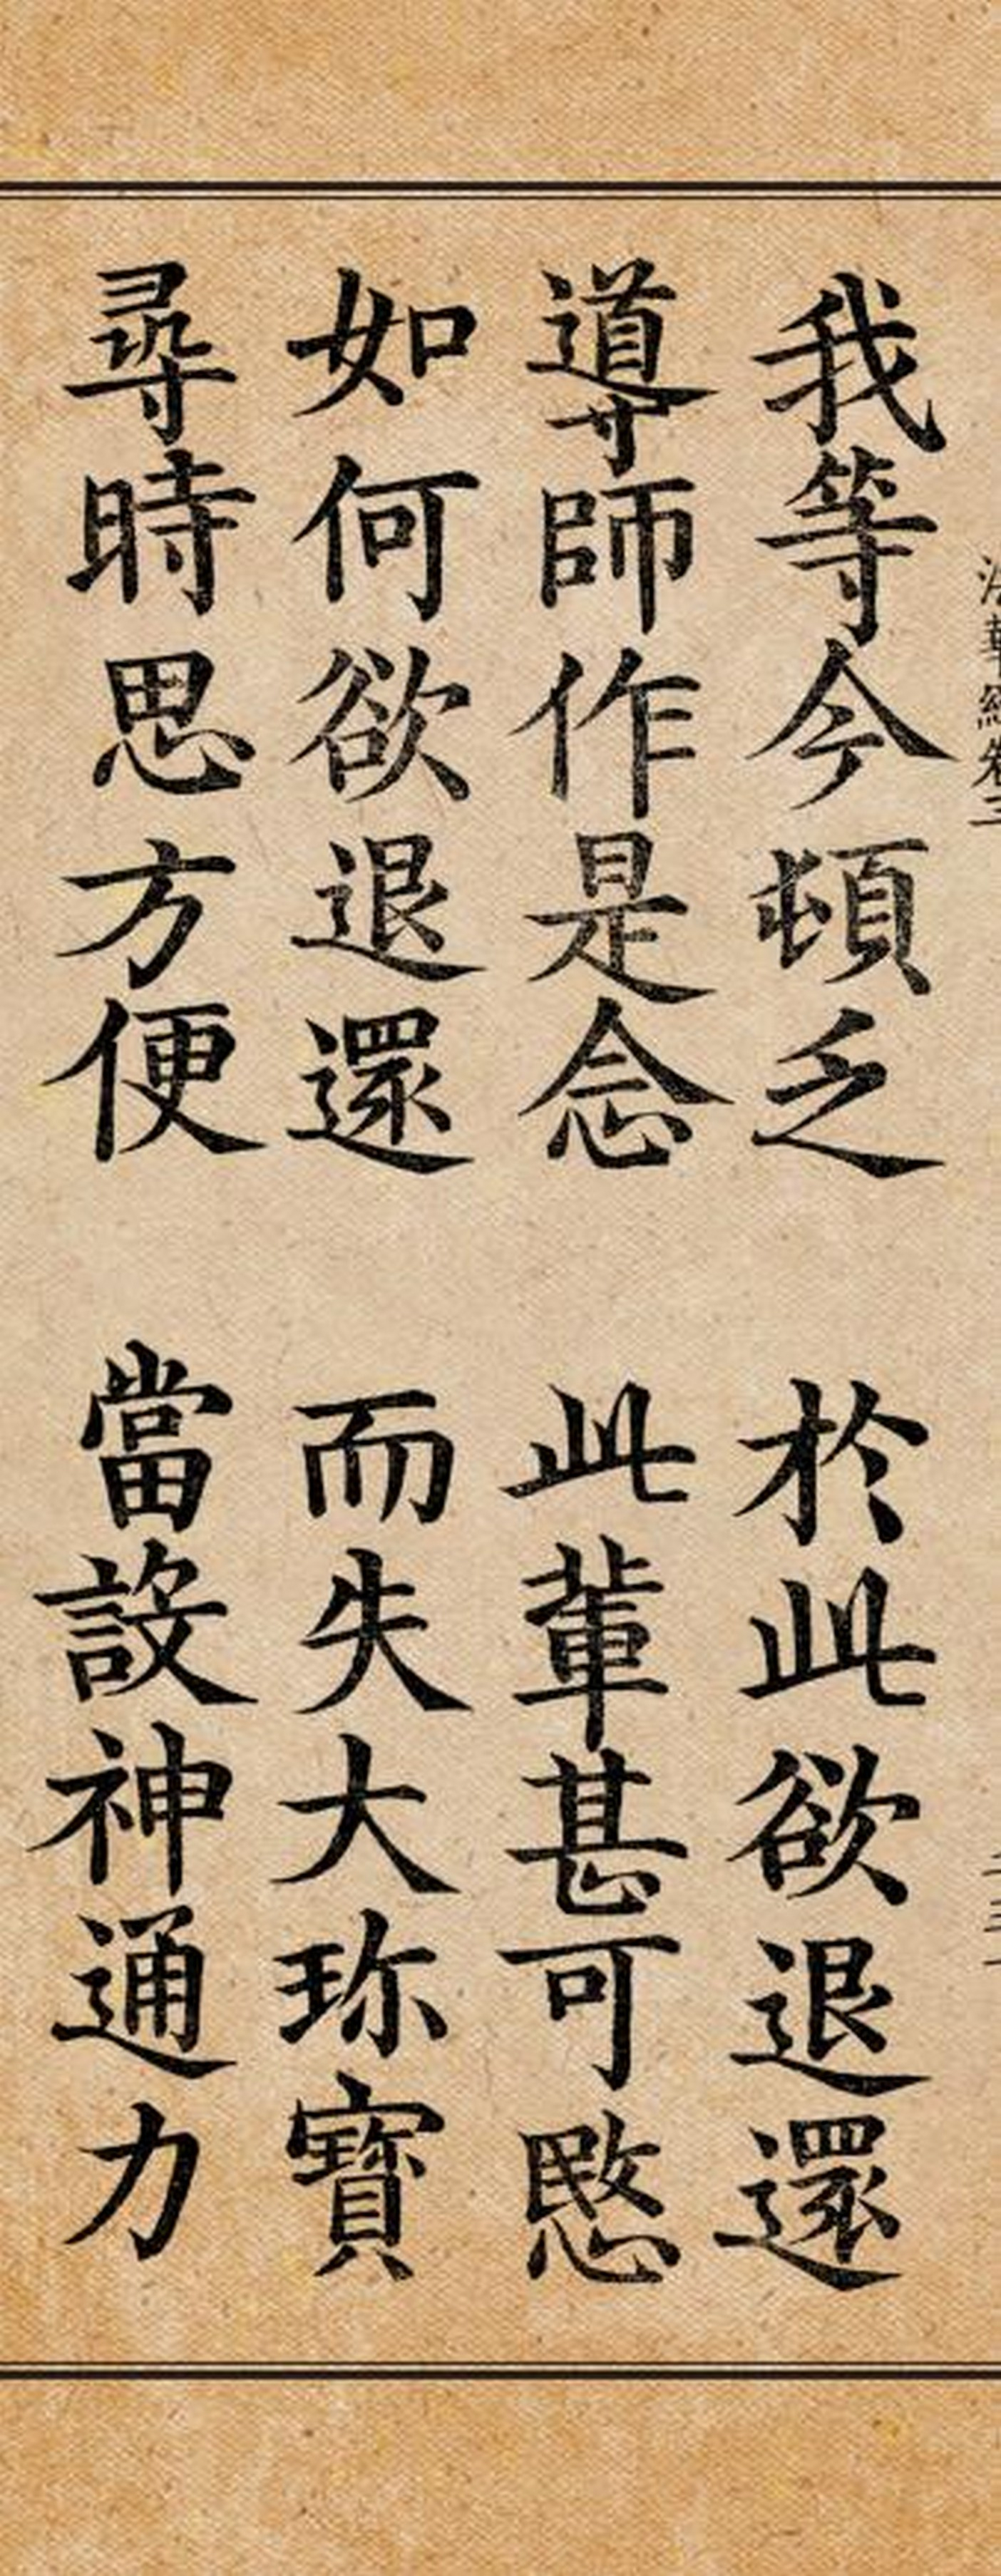 法華經卷三
我等今頓乏　於此欲退還
導師作是念　此輩甚可愍
如何欲退還　而失大珍寶
尋時思方便　當設神通力